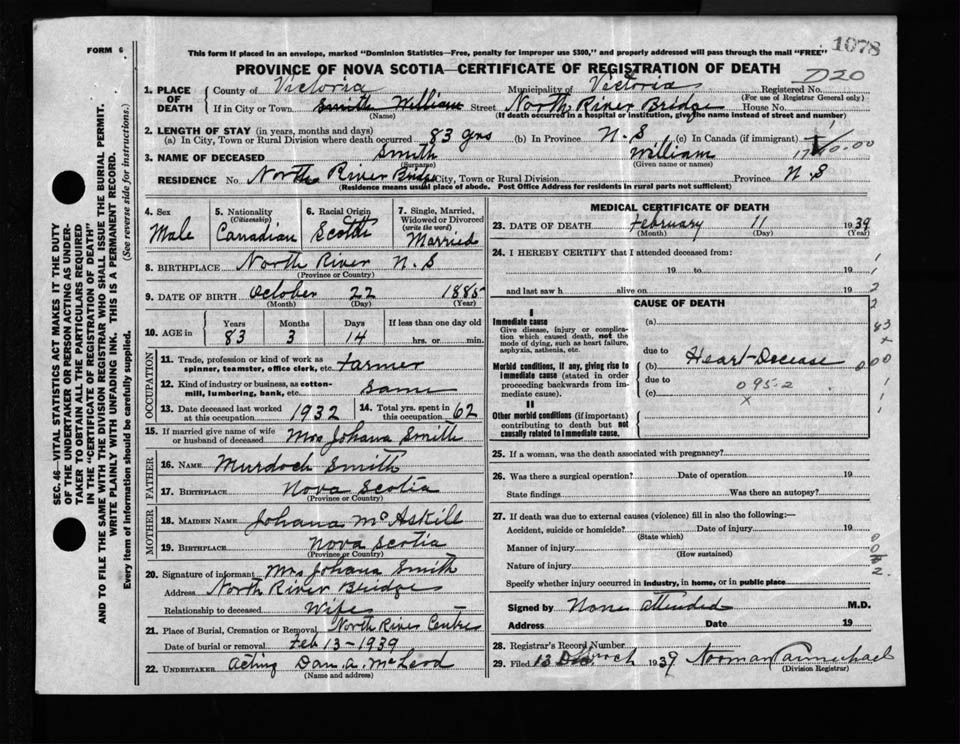 FORM 6
This form if placed in an envelope, marked "Dominion Statistics—Free, penalty for improper use $300," and properly addressed will pass through the mail "FREE"
1078
PROVINCE OF NOVA SCOTIA—CERTIFICATE OF REGISTRATION OF DEATH
D20
1. PLACE OF DEATH
County of Victoria Municipality of Victoria Registered No.
(For use of Registrar General only)
If in City or Town Smith William Street North River Bridge House No.
(Name) (If death occurred in a hospital or institution, give the name instead of street and number)
2. LENGTH OF STAY (in years, months and days)
(a) In City, Town or Rural Division where death occurred 83 yrs (b) In Province N.S (c) In Canada (if immigrant)
3. NAME OF DECEASED Smith William
(Surname) (Given name or names)
RESIDENCE No. North River Bridge City, Town or Rural Division Province N.S
(Residence means usual place of abode. Post Office Address for residents in rural parts not sufficient)
4. Sex
Male
5. Nationality
(Citizenship)
Canadian
6. Racial Origin
Scotch
7. Single, Married, Widowed or Divorced
(write the word)
Married
8. BIRTHPLACE North River N.S
(Province or Country)
9. DATE OF BIRTH October 22 1885
(Month) (Day) (Year)
10. AGE in
Years Months Days If less than one day old
83 3 14 hrs. or min.
OCCUPATION
11. Trade, profession or kind of work as spinner, teamster, office clerk, etc. Farmer
12. Kind of industry or business, as cotton-mill, lumbering, bank, etc. Same
13. Date deceased last worked at this occupation 1932
14. Total yrs. spent in this occupation 62
15. If married give name of wife or husband of deceased Mrs Johana Smith
FATHER
16. NAME Murdoch Smith
17. BIRTHPLACE Nova Scotia
(Province or Country)
MOTHER
18. MAIDEN NAME Johana McAskill
19. BIRTHPLACE Nova Scotia
(Province or Country)
20. Signature of informant Mrs Johana Smith
Address North River Bridge
Relationship to deceased Wife
21. Place of Burial, Cremation or Removal North River Centre
Date of burial or removal Feb 13-1939
22. UNDERTAKER Acting Dan. A. McLeod
(Name and address)
MEDICAL CERTIFICATE OF DEATH
23. DATE OF DEATH February 11 1939
(Month) (Day) (Year)
24. I HEREBY CERTIFY that I attended deceased from:
19 to 19
and last saw h alive on 19
CAUSE OF DEATH
I
Immediate cause
Give disease, injury or complication which caused death, not the mode of dying, such as heart failure, asphyxia, asthenia, etc.
(a)
due to
Morbid conditions, if any, giving rise to immediate cause (stated in order proceeding backwards from immediate cause).
(b) Heart-Decease
due to 095-2
(c) x
II
Other morbid conditions (if important) contributing to death but not causally related to immediate cause.
25. If a woman, was the death associated with pregnancy?
26. Was there a surgical operation? Date of operation 19
State findings Was there an autopsy?
27. If death was due to external causes (violence) fill in also the following:—
Accident, suicide or homicide? Date of injury 19
(State which)
Manner of injury
(How sustained)
Nature of injury
Specify whether injury occurred in industry, in home, or in public place
Signed by None attended M.D.
Address Date 19
28. Registrar's Record Number
29. Filed 13 March 1939 Norman Carmichael
(Division Registrar)
SEC. 46—VITAL STATISTICS ACT MAKES IT THE DUTY
OF THE UNDERTAKER OR PERSON ACTING AS UNDER-
TAKER TO OBTAIN ALL THE PARTICULARS REQUIRED
IN THE "CERTIFICATE OF REGISTRATION OF DEATH"
AND TO FILE THE SAME WITH THE DIVISION REGISTRAR WHO SHALL ISSUE THE BURIAL PERMIT.
WRITE PLAINLY WITH UNFADING INK. THIS IS A PERMANENT RECORD.
Every item of information should be carefully supplied. (See reverse side for instructions.)